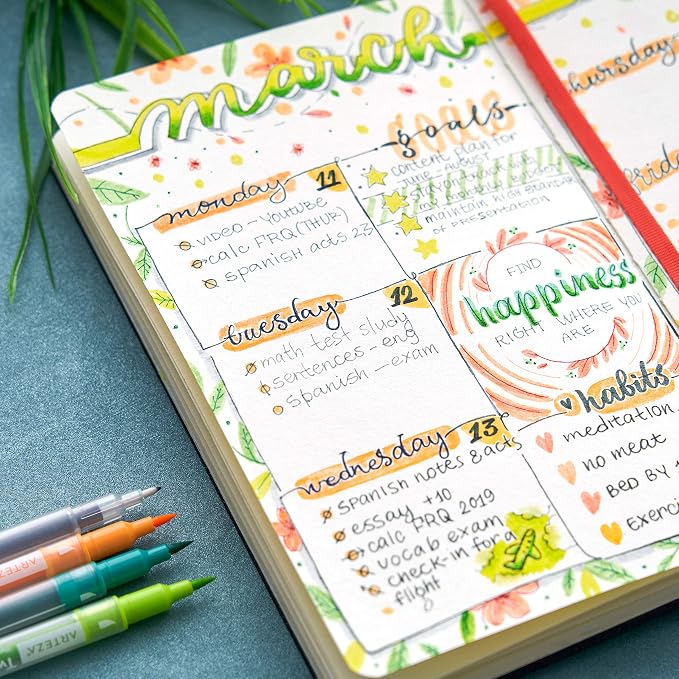 march
monday 11
video - YouTube
calc FRQ (THUR)
spanish acts 23
tuesday 12
math test study
sentences - eng
spanish - exam
wednesday 13
spanish notes & acts
essay +10
calc FRQ 2019
vocab exam
check-in for a
flight
goals
content plan for
june - AUGUST
maintain high STANDARD
of PRESENTATION
FIND
happiness
RIGHT WHERE YOU
ARE
habits
meditation
no meat
BED BY
Thursday
ARTEZA
ARTEZA